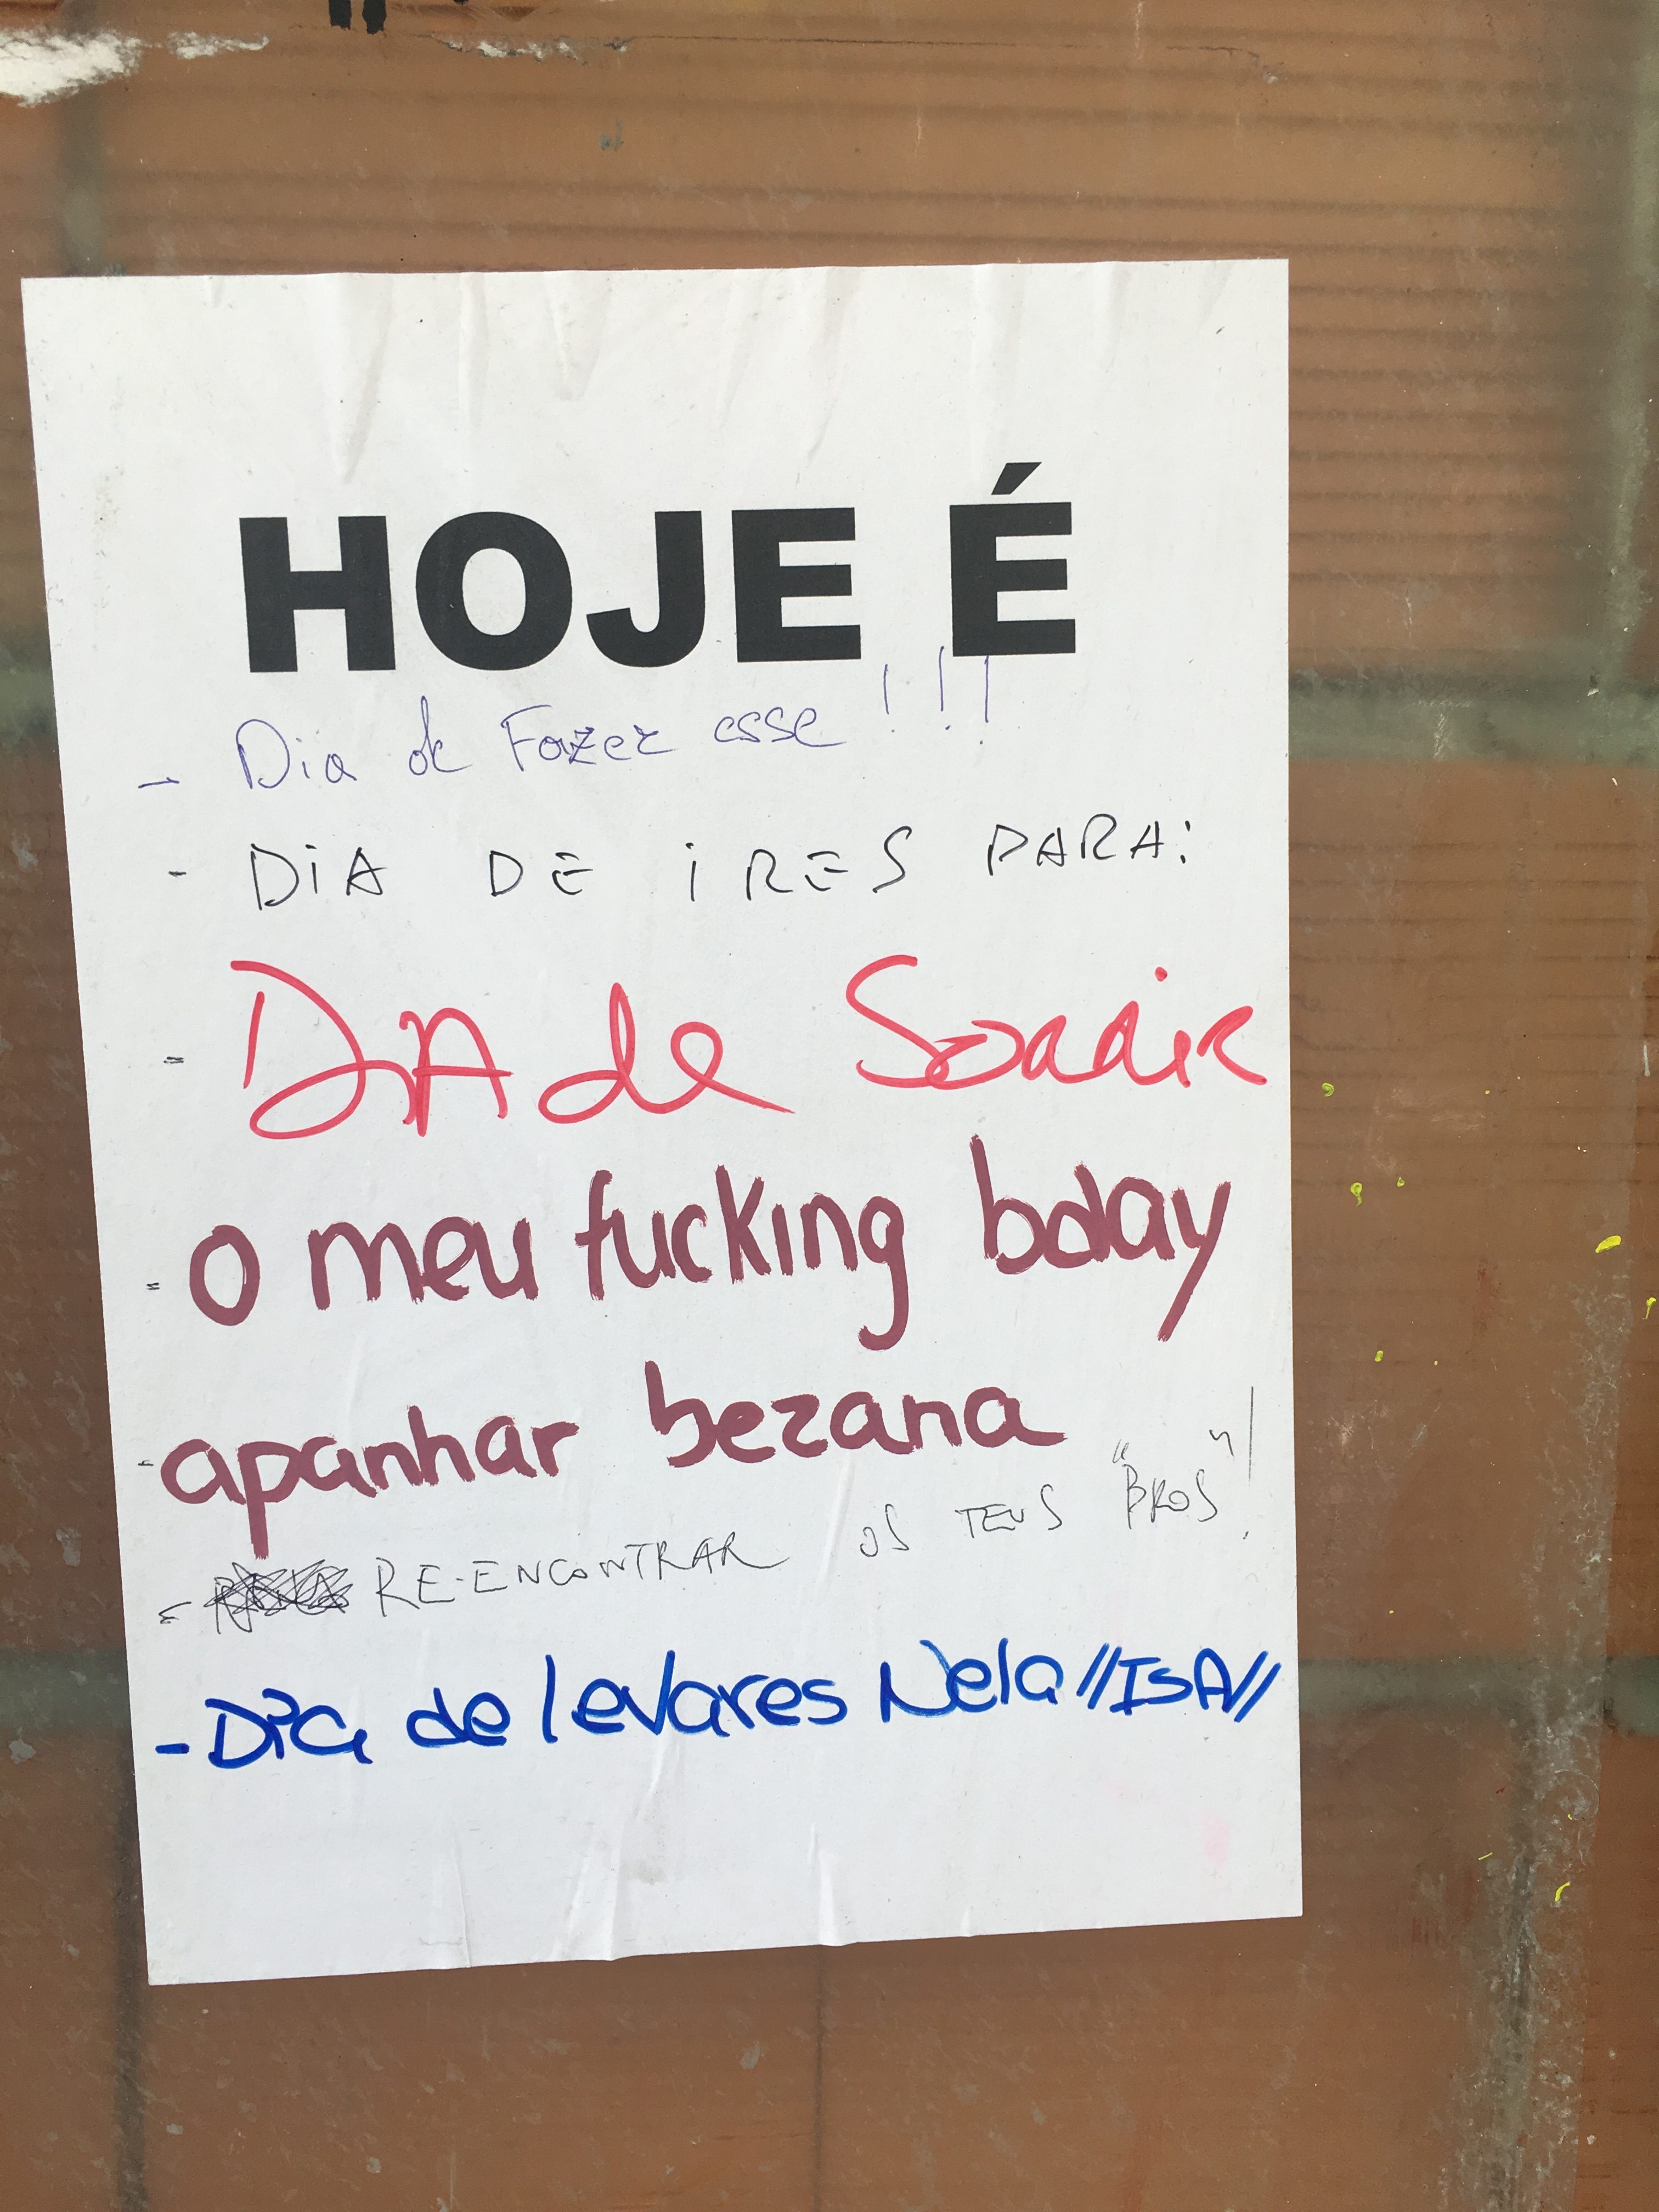 HOJE É
- Dia de Fazer esse !!!
- DiA DE iRES PARA:
= DIA de Sorrir
= o meu fucking bday
- apanhar bezana
- RE-ENCONTRAR OS TEUS "BROS"!
- Dia de levares Nela //ISA//